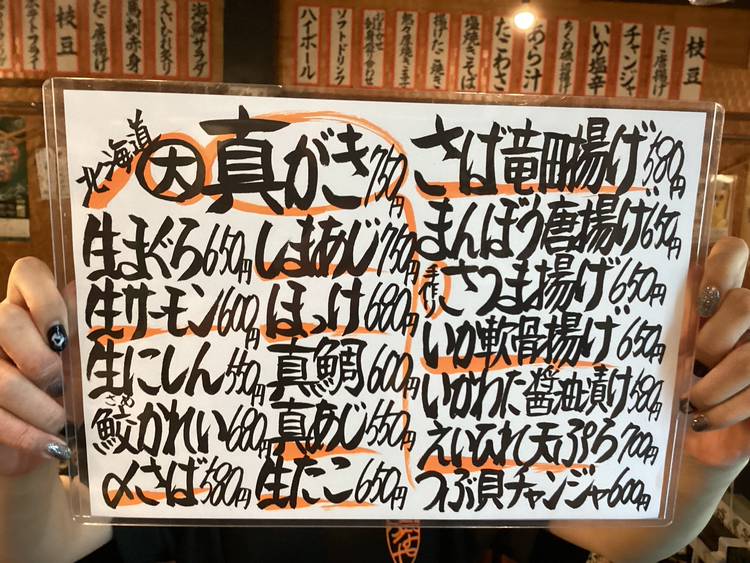 海鮮サラダ
えいひれ炙り
馬刺赤身
たこ唐揚げ
枝豆
ハイボール
ソフトドリンク
揚げたこ焼き
塩焼きそば
たこわさ
あら汁
ちくわ磯辺揚げ
いか塩辛
チャンジャ
たこ唐揚げ
枝豆
北海道 大 真がき 750円
生まぐろ 650円 しまあじ 750円
生サーモン 600円 ほっけ 680円
生にしん 550円 真鯛 600円
鮫がれい 680円 真あじ 550円
さめ
〆さば 580円 生たこ 650円
さば竜田揚げ 580円
まんぼう唐揚げ 650円
手作り さつま揚げ 650円
いか軟骨揚げ 650円
いかわた醤油漬け 580円
えいひれ天ぷら 700円
つぶ貝チャンジャ 600円